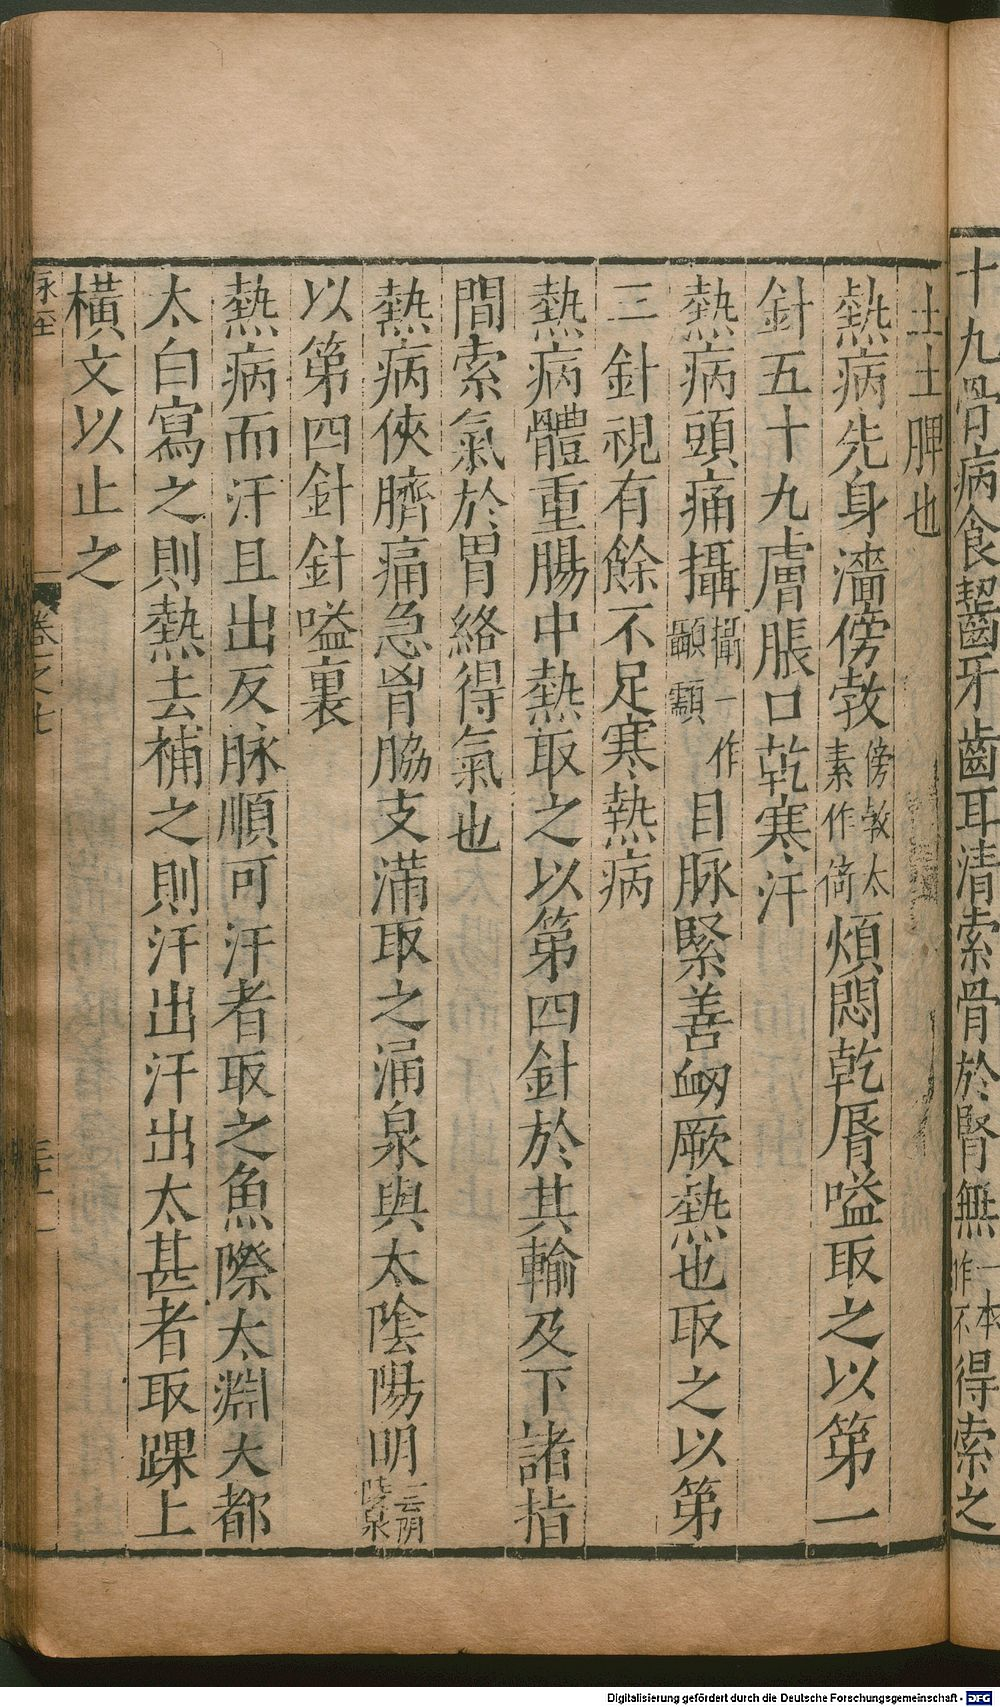 十九骨病食齧齒牙齒耳清索骨於腎無一本作不得索之
土土脾也
熱病先身濇傍敎傍敎太素作倚煩悶乾脣嗌取之以第一
針五十九膚脹口乾寒汗
熱病頭痛攝攝一作顳顬目脉緊善衂厥熱也取之以第
三針視有餘不足寒熱病
熱病體重腸中熱取之以第四針於其輸及下諸指
間索氣於胃絡得氣也
熱病俠臍痛急胷脇支滿取之涌泉與太陰陽明一云陰陵泉
以第四針針嗌裏
熱病而汗且出反脉順可汗者取之魚際太淵大都
太白寫之則熱去補之則汗出汗出太甚者取踝上
橫文以止之
脉巠 卷之七 三十一
Digitalisierung gefördert durch die Deutsche Forschungsgemeinschaft - DFG